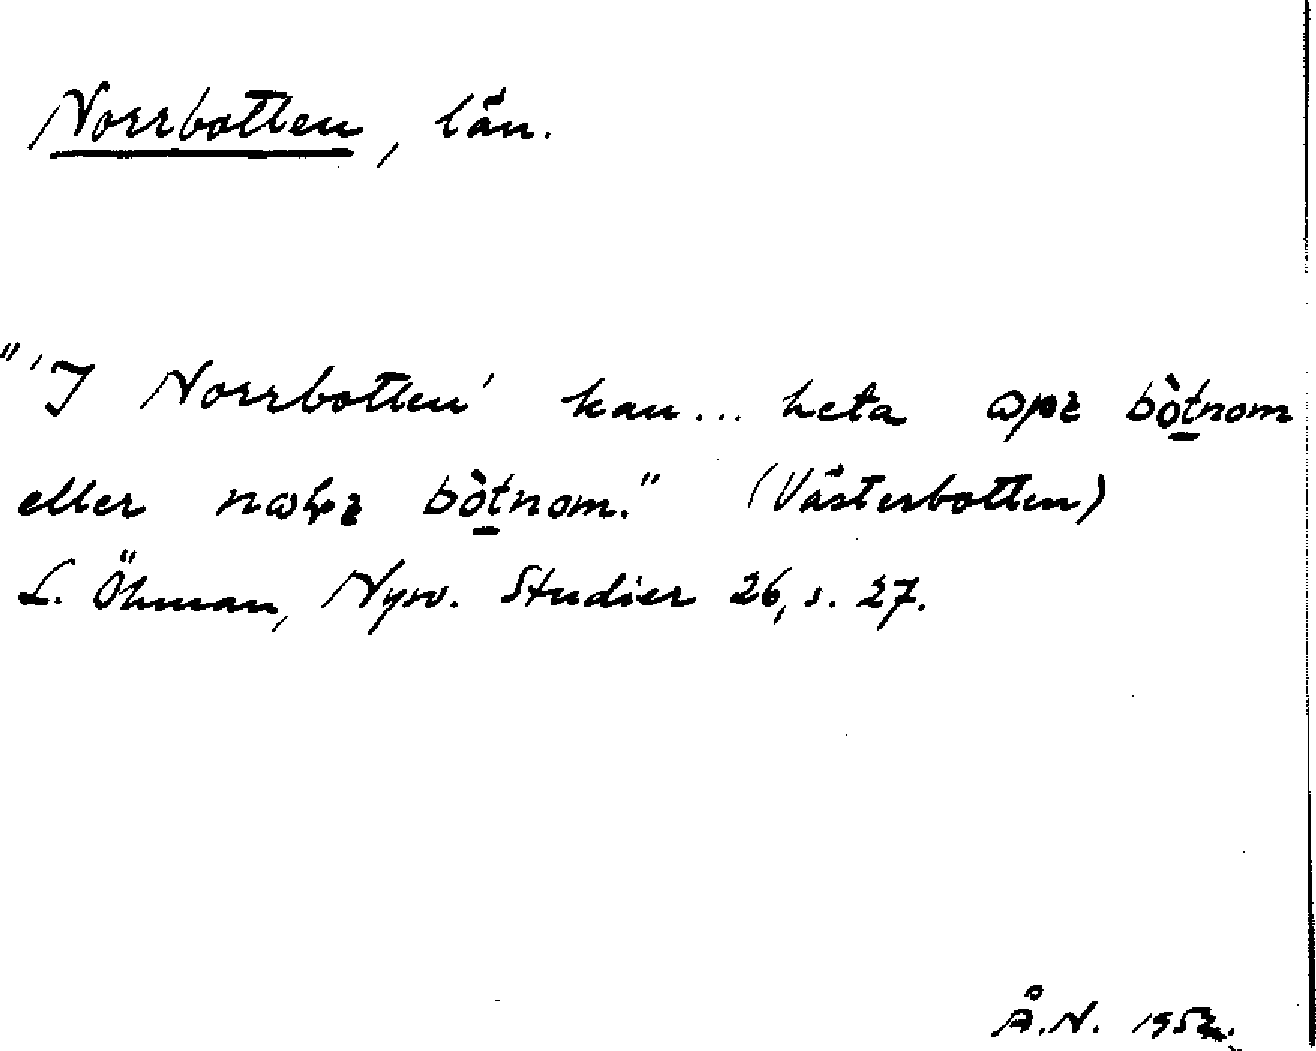 Norrbotten, län.
"'I Norrbotten' kan... heta bòtnom
eller bòtnom." (Västerbotten)
L. Öhman, Nysv. Studier 26, s. 27.
Å.N. 1952.